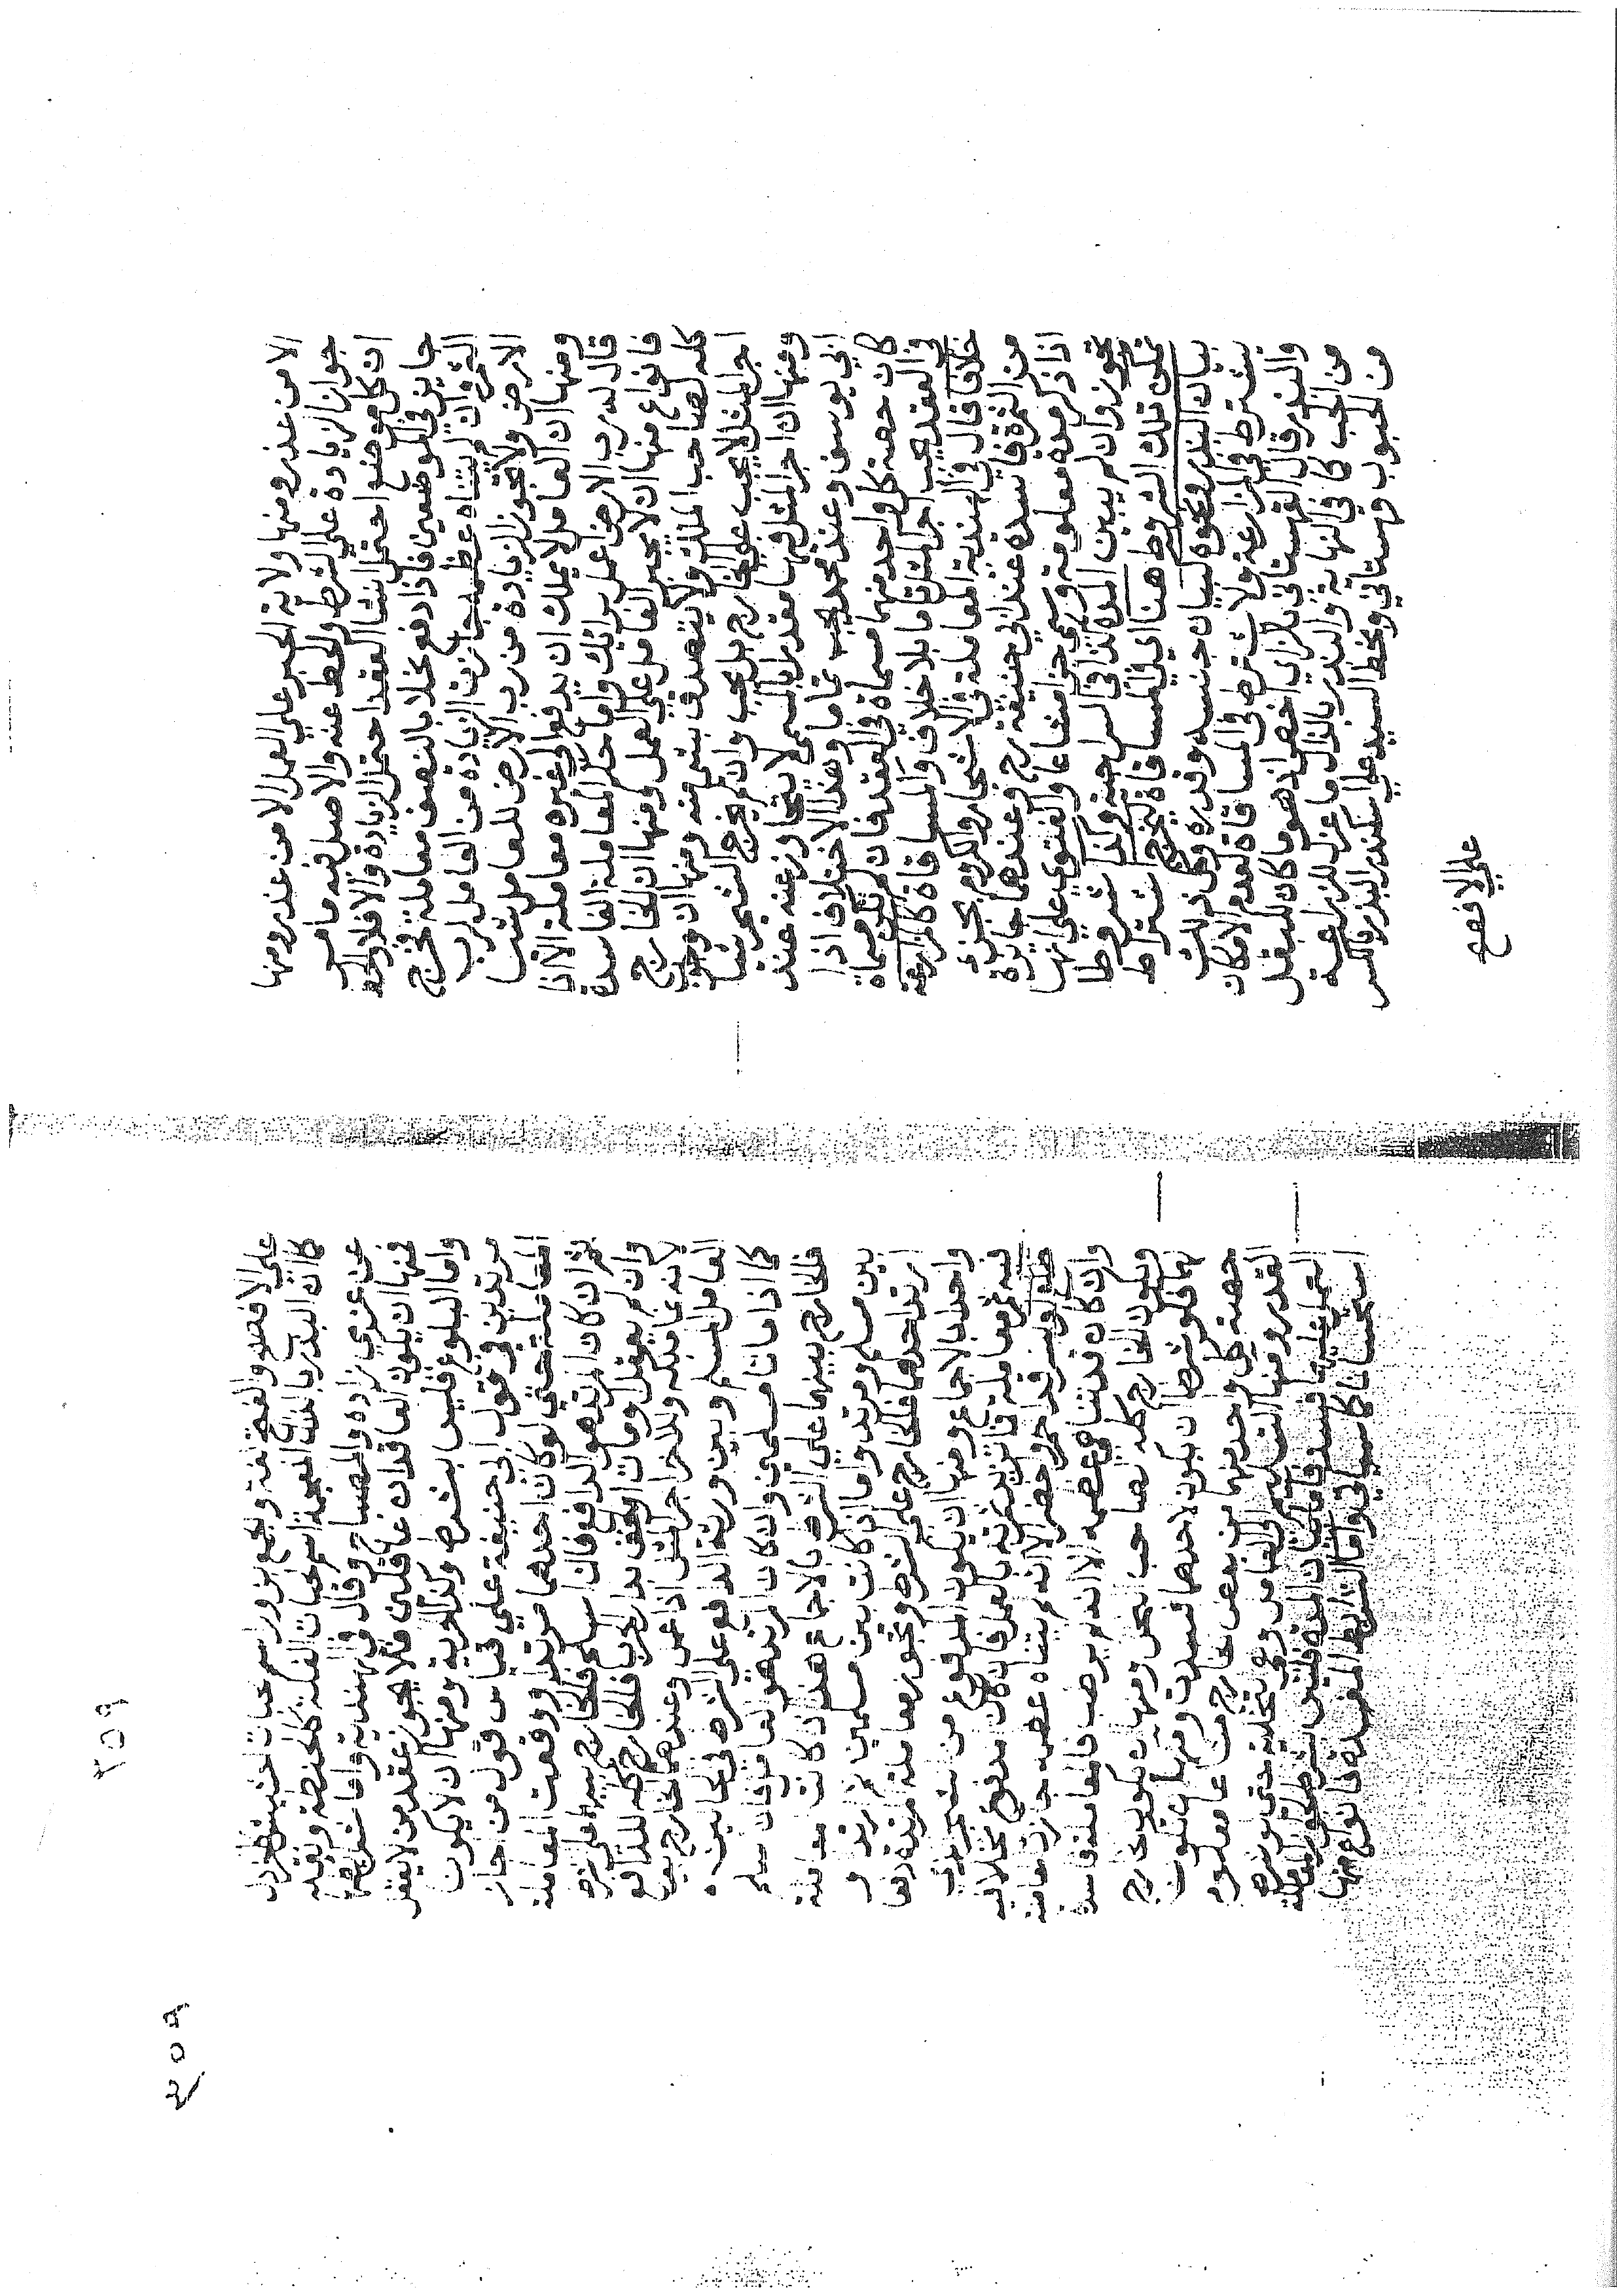 الا من عذر ومنها ولاية الجبر علي العمل الا من عذر ومنها
جواز الزيادة علي الشرط والحط عنه والاصل فيه ما مر
ان كل موضع احتمل انشا العقد احتمل الزيادة والا فلا والحط
جايز في الموضعين فاذا دفع نخلا بالنصف معاملة فخرج
الثمر ان لم يتناه عظمه جازت الزيادة من العامل لرب
الارض ولا تجوز الزيادة من رب الارض للعامل شيا
ومنها ان العامل لا يملك ان يدفع الي غيره معاملة الا اذا
قال له رب الارض اعمل برائك واما حكم المعاملة الفاسدة
فانواع منها ان لا يجبر العامل علي العمل ومنها ان الخارج
كله لصاحب الملك ولا يتصدق بشي منه ومنها ان وجوب
اجر المثل لا يجب علي الخارج بل يجب وان لم يخرج الشجر شيا
ومنها ان اجر المثل فيها مقدر بالمسمي لا يتجاوز عنه عند
ابي يوسف وعند محمد يجب تماما وهذا الاختلاف اذا
كان حصة كل واحد منهما مسماة في العقد فان لم تكن مسماة
في العقد يجب اجر المثل تاما بلا خلاف والمساقاة كالمزارعة
خلافا قال في الهندية المعاملة في الاشجار والكروم بجزء
من الثمرة فاسدة عند ابي حنيفة رح وعندهما جايزة
اذا ذكر مدة معلومة وسمي جزا مشاعا والفتوي علي انها
تجوز وان لم يبين المدة كذا في السراجية وكذا شروطا
يمكن تلك الشروط هنا اي في المساقاة ليخرج اشتراط
بيان البذر ونحوه لبيان جنسه وقدره وكل ذلك
يشترط في المزارعة ولا يشترط في المساقاة لعدم الامكان
والبذر قال القهستاني بالزاي اخص اذ هو ما كان للبقل
من الحب كما في النهاية والبذر بالذال ما عزل للزراعة
من الحبوب قهستاني وبخط السيد علي اسكندر البذر بالكسر
علي الافصح
٢٥٩
علي الافصح والفتح لغة وبجمع بزور اسم
كان البذر بالذال المعجمة اسم لحبات الغلة كالحنطة ونقله
عن عزمي زاده والمصباح وقال في الهندية واما شرايطها
فمنها ان يكون العاقدان عاقلين فلا يجوز عقد من لا يعقل
واما البلوغ فليس بشرط وكذا الحرية ومنها ان لا يكون
مرتدين في قول ابي حنيفة علي قياس قول من اجاز
المعاملة حتي لو كان احدهما مرتدا ووقعت المعاملة
ثم ان كان المرتد هو الدافع فان اسلم فالخارج بينهما علي الشرط
وان لم يعقل ومات او لحق بدار الحرب فالخارج كله للدافع
لانه نما ملكه وللاخر اجر المثل اذا عمل وعندهما الخارج بين
العامل المسلم وبين ورثة الدافع علي الشرط في الحالين
كما اذا ماتا مسلمين وان كان المرتد هو العامل فان اسلم
فالخارج بينهما علي الشرط بالاجماع هذا ان كانت معاملة
بين مسلم ومرتد واما اذا كانت بين مسلمين ثم ارتدا او
ارتد احدهما فالخارج علي الشرط وتجوز معاملة مرتدة دفعا
واحدا بالاجماع ومنها ان يكون المدفوع من شجر
فيه ثمر معاملة فانه يزيد ثمره بالعمل فان كان مدفوع نخلا فيه
طلع او بسر قد احمر او اخضر الا انه لم يتناه عظمه جازت المعاملة
وان كان قد تناهي عظمه الا انه لم يرطب فالمعاملة فاسدة
ويكون الخارج كله لصاحب النخل ومنها ان يكون الخارج
لهما فلو شرطا ان يكون لاحدهما فسدت ومنها ان تكون
حصة كل واحد منهما من بعض الخارج مشاعا معلوم
القدر ومنها التسليم الي العامل وهي التخلية حتي لو شرط
العمل عليهما فسدت فاما بيان المدة فليس بشرط لجواز المعاملة
استحسانا كما سياتي واما الشرايط المفسدة فانواع منها
٢٥٩